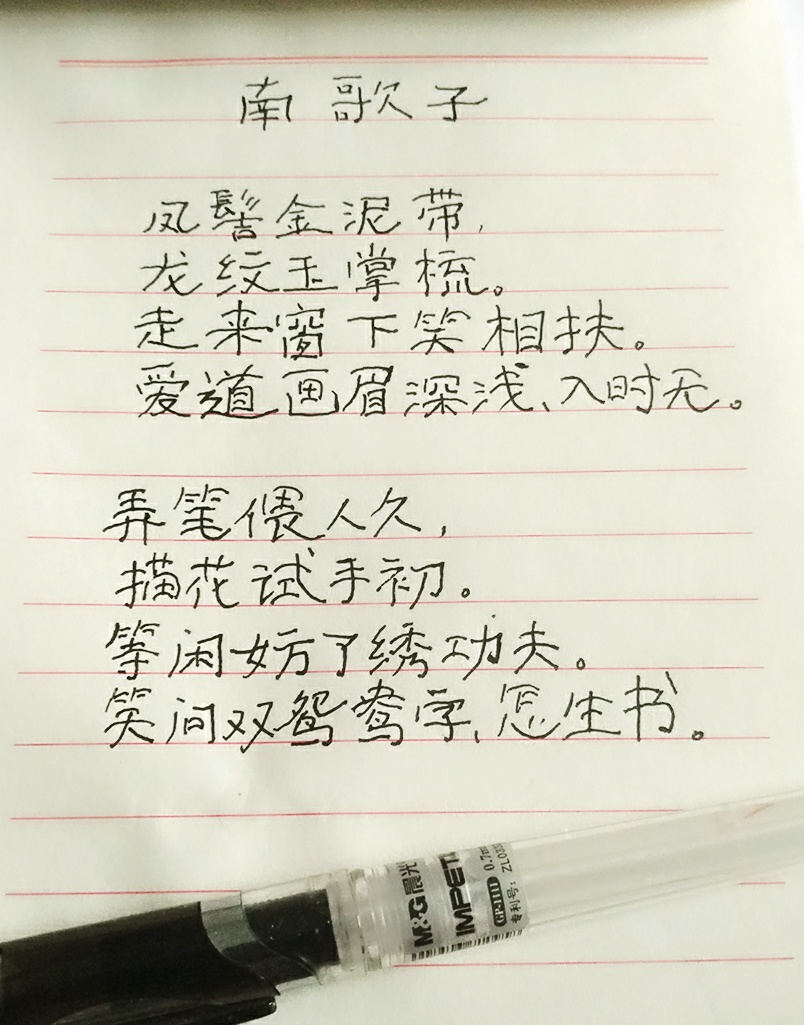 南歌子
凤髻金泥带，
龙纹玉掌梳。
走来窗下笑相扶。
爱道画眉深浅、入时无。
弄笔偎人久，
描花试手初。
等闲妨了绣功夫。
笑问双鸳鸯字、怎生书。
M&G晨光
IMPETU
GP-1111 0.7m
专利号：ZL033